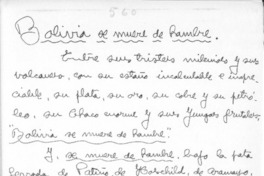 560
Bolivia se muere de hambre.
Entre sus tristes milenios y sus
volcanes, con su estaño incalculable e impre-
cisable, su plata, su oro, su cobre y su petró-
leo, su Chaco enorme y sus Yungas frutales,
"Bolivia se muere de hambre".
Y, se muere de hambre, bajo la pata
de Patiño, de Hoschild, de Aramayo,